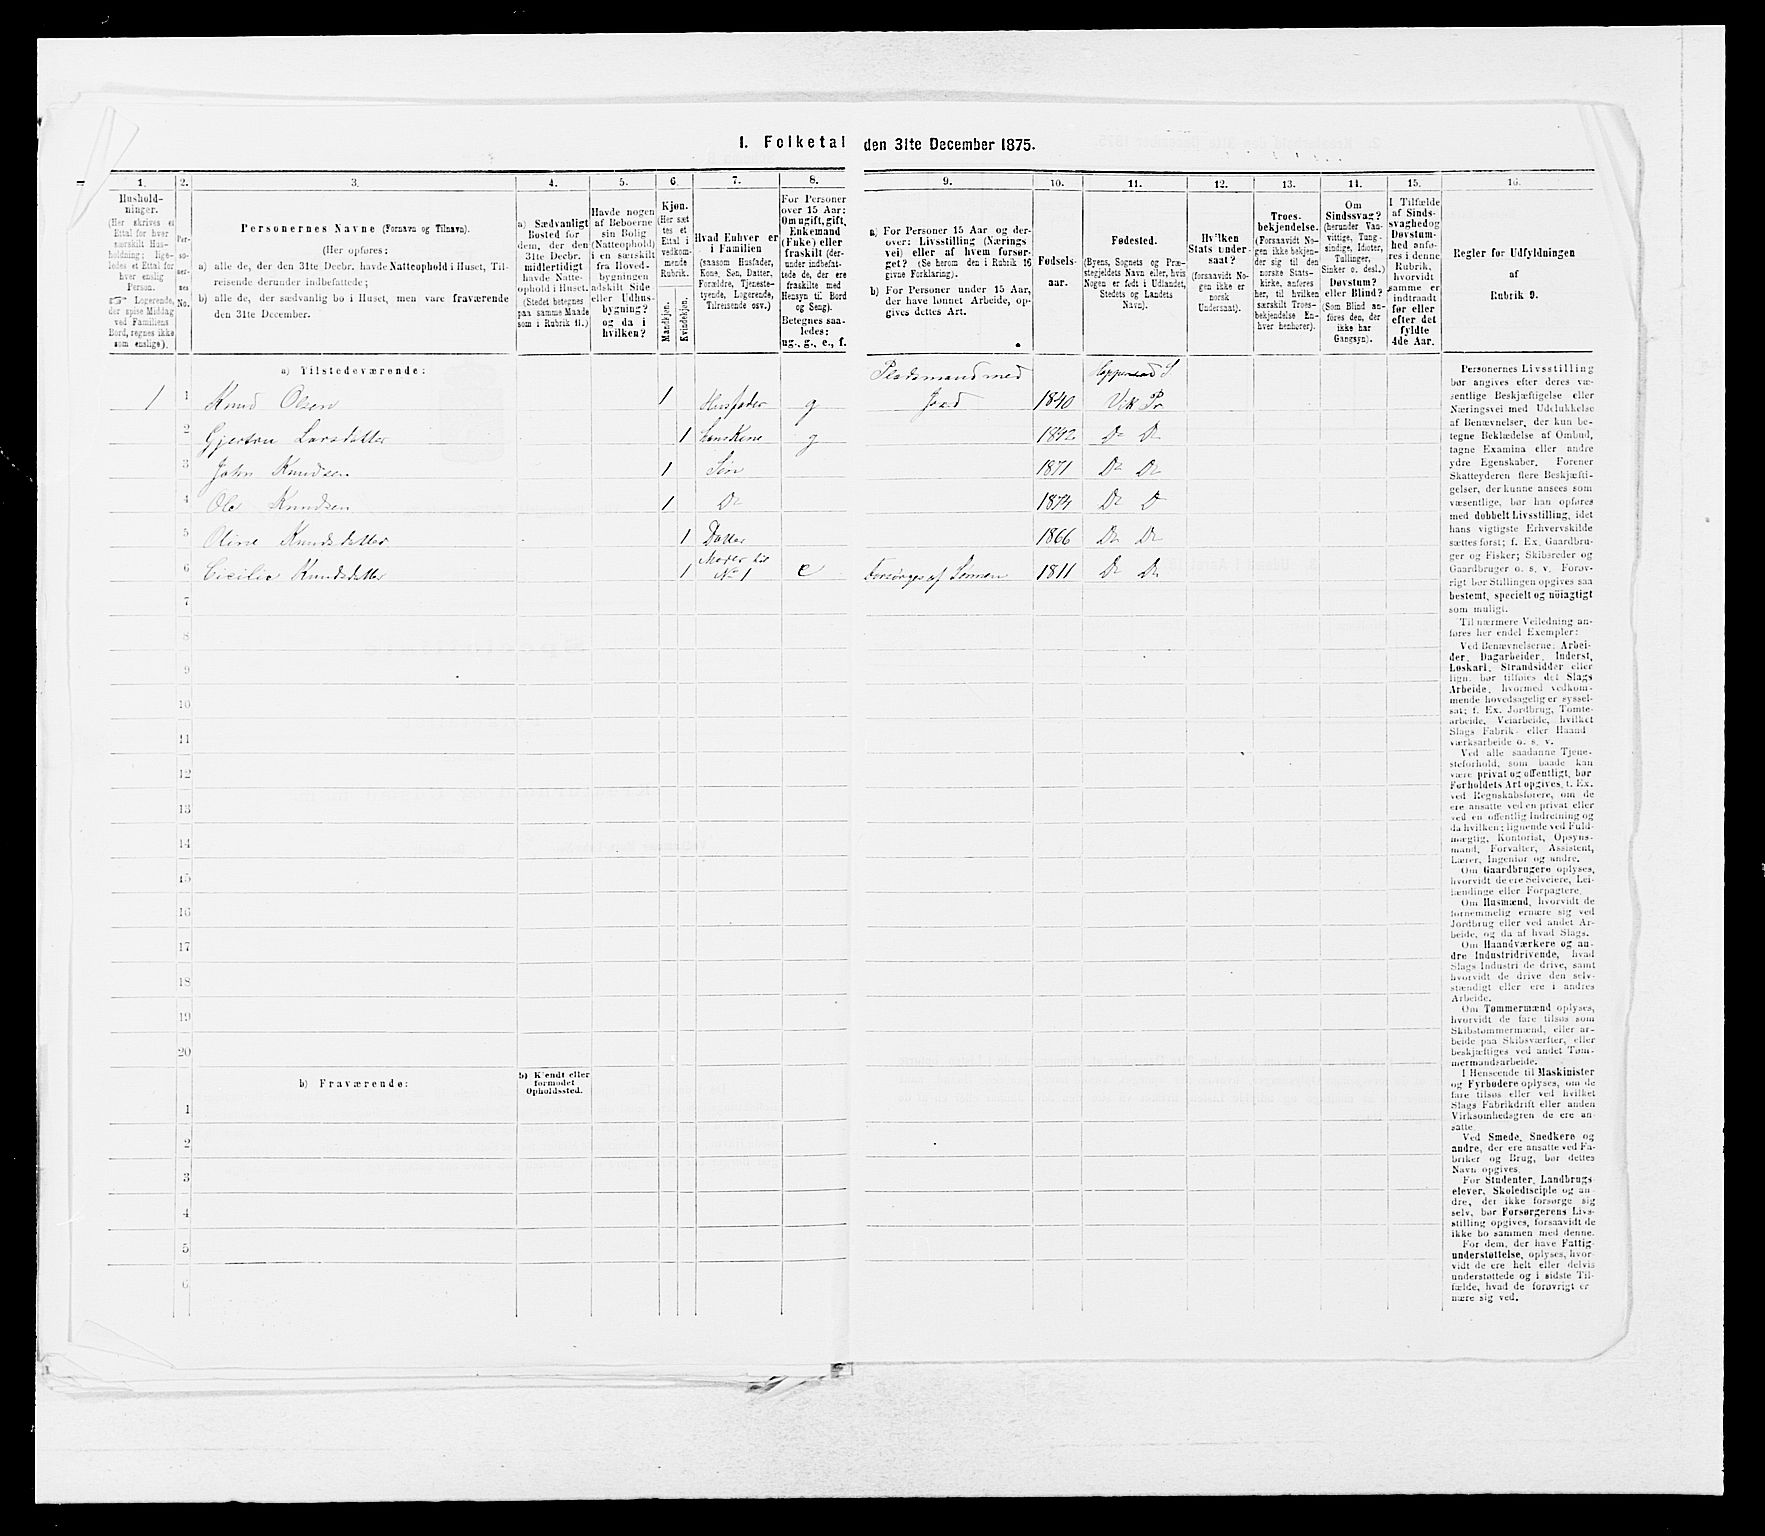 1. Folketal den 31te December 1875.
1. 2. 3. 4. 5. 6. 7. 8. 9. 10. 11. 12. 13. 14. 15. 16.
Hushold-
ninger.
(Her skrives et
Ettal for hver
særskilt Hus-
holdning; lige-
ledes et Ettal for
hver enslig
Person.
☞ Logerende,
der spise Middag
ved Familiens
Bord, regnes ikke
som enslige).
Per-
so-
ner-
nes
No.
Personernes Navne (Fornavn og Tilnavn).
(Her opføres:
a) alle de, der den 31te Decbr. havde Natteophold i Huset, Til-
reisende derunder indbefattede;
b) alle de, der sædvanlig bo i Huset, men vare fraværende
den 31te December.
a) Sædvanligt
Bosted for
dem, der den
31te Decbr.
midlertidigt
havde Natte-
ophold i Huset.
(Stedet betegnes
paa samme Maade
som i Rubrik 11.)
Havde nogen
af Beboerne
sin Bolig
(Natteophold)
i en særskilt
fra Hoved-
bygningen
adskilt Side
eller Udhus-
bygning?
og da i
hvilken?
Kjøn.
(Her sæt-
tes et
Ettal i
vedkom-
mende
Rubrik.
Mandkjøn.
Kvindekjøn.
Hvad Enhver er
i Familien
(saasom Husfader,
Kone, Søn, Datter,
Forældre, Tjeneste-
tyende, Logerende,
Tilreisende osv.)
For Personer
over 15 Aar:
Om ugift, gift,
Enkemand
(Enke) eller
fraskilt (der-
under indbefat-
tede de, der ere
fraskilte med
Hensyn til Bord
og Seng).
Betegnes saa-
ledes:
ug., g., e., f.
a) For Personer 15 Aar og der-
over: Livsstilling (Nærings-
vei) eller af hvem forsør-
get? (Se herom den i Rubrik 16
givne Forklaring).
b) For Personer under 15 Aar,
der have lønnet Arbeide, op-
gives dettes Art.
Fødsels-
aar.
Fødested.
(Byens, Sognets og Præ-
stegjeldets Navn eller, hvis
Nogen er født i Udlandet,
Stedets og Landets
Navn).
Hvilken
Stats under-
saat?
(forsaavidt No-
gen ikke er
norsk
Undersaat).
Troes-
bekjendelse.
(Forsaavidt No-
gen ikke bekjen-
der sig til den
norske Stats-
kirke, anføres
her, til hvilken
særskilt Troes-
bekjendelse En-
hver henhører).
Om
Sindssvag?
(herunder Van-
vittige, Tung-
sindige, Idioter,
Tullinger,
Sinker o. desl.)
Døvstum?
eller Blind?
(Som Blind an-
føres den, der
ikke har
Gangsyn).
I Tilfælde
af Sinds-
svaghed og
Døvstum-
hed anfø-
res i denne
Rubrik,
hvorvidt
samme er
indtraadt
før eller
efter det
fyldte
4de Aar.
Regler for Udfyldningen
af
Rubrik 9.
a) Tilstedeværende:
1 1 Knud Olsen 1 Husfader g Pladsmand med Jord 1840 Vik Pr
2 Gjertru Larsdatter 1 hans Kone g 1842 Do Do
3 John Knudsen 1 Søn 1871 Do Do
4 Ole Knudsen 1 Do 1874 Do D
5 Oline Knudsdatter 1 Datter 1866 Do Do
6 Cicilie Knudsdatter 1 Moder til No 1 e Forsørges af Sønnen 1811 Do Do
7
8
9
10
11
12
13
14
15
16
17
18
19
20
b) Fraværende:
b) Kjendt eller
formodet
Opholdssted.
1
2
3
4
5
6
Personernes Livsstilling
bør angives efter deres væ-
sentlige Beskjæftigelse eller
Næringsvei med Udelukkelse
af Benævnelser, der kun be-
tegne Beklædelse af Ombud,
tagne Examina eller andre
ydre Egenskaber. Forener
Skatteyderen flere Beskjæfti-
gelser, der kunne ansees som
væsentlige, bør han opføres
med dobbelt Livsstilling, idet
hans vigtigste Erhvervskilde
sættes først; f. Ex. Gaardbru-
ger og Fisker; Skibsreder og
Gaardbruger o. s. v. Forøv-
rigt bør Stillingen opgives saa
bestemt, specielt og nöiagtigt
som muligt.
Til nærmere Veiledning an-
føres her endel Exempler:
Ved Benævnelserne: Arbei-
der, Dagarbeider, Inderst,
Løskarl, Strandsidder eller
lign. bør tilføies det Slags
Arbeide, hvormed vedkom-
mende hovedsagelig er syssel-
sat; f. Ex. Jordbrug, Tomte-
arbeide, Veiarbeide, hvilket
Slags Fabrik- eller Haand-
værksarbeide o. s. v.
Ved alle saadanne Tjene-
steforhold, som baade kan
være privat og offentligt, bør
Forholdets Art opgives, f. Ex.
ved Regnskabsførere, om de
ere ansatte ved en privat eller
ved en offentlig Indretning og
da hvilken; lignende ved Fuld-
mægtig, Kontorist, Opsyns-
mand, Forvalter, Assistent,
Lærer, Ingeniør og andre.
Om Gaardbrugere oplyses,
hvorvidt de ere Selveiere, Lei-
lændinge eller Forpagtere.
Om Husmænd, hvorvidt de
fornemmelig ernære sig ved
Jordbrug eller ved andet Ar-
beide, og da af hvad Slags.
Om Haandværkere og an-
dre Industridrivende, hvad
Slags Industri de drive, samt
hvorvidt de drive den selv-
stændigt eller ere i andres
Arbeide.
Om Tømmermænd oplyses,
hvorvidt de fare tilsøs som
Skibstømmermænd, eller ar-
beide paa Skibsværfter, eller
beskjæftiges ved andet Tøm-
mermandsarbeide.
I Henseende til Maskinister
og Fyrbødere oplyses, om de
fare tilsøs eller ved hvilket
Slags Fabrikdrift eller anden
Virksomhedsgren de ere an-
satte.
Ved Smede, Snedkere og
andre, der ere ansatte ved Fa-
briker og Brug, bør dettes
Navn opgives.
For Studenter, Landbrugs-
elever, Skoledisciple og an-
dre, der ikke forsørge sig
selv, bør Forsørgerens Livs-
stilling opgives, forsaavidt de
ikke bo sammen med denne.
For dem, der have Fattig-
understøttelse, oplyses, hvor-
vidt de ere helt eller delvis
understøttede og i sidste Til-
fælde, hvad de forøvrigt er-
nære sig ved.